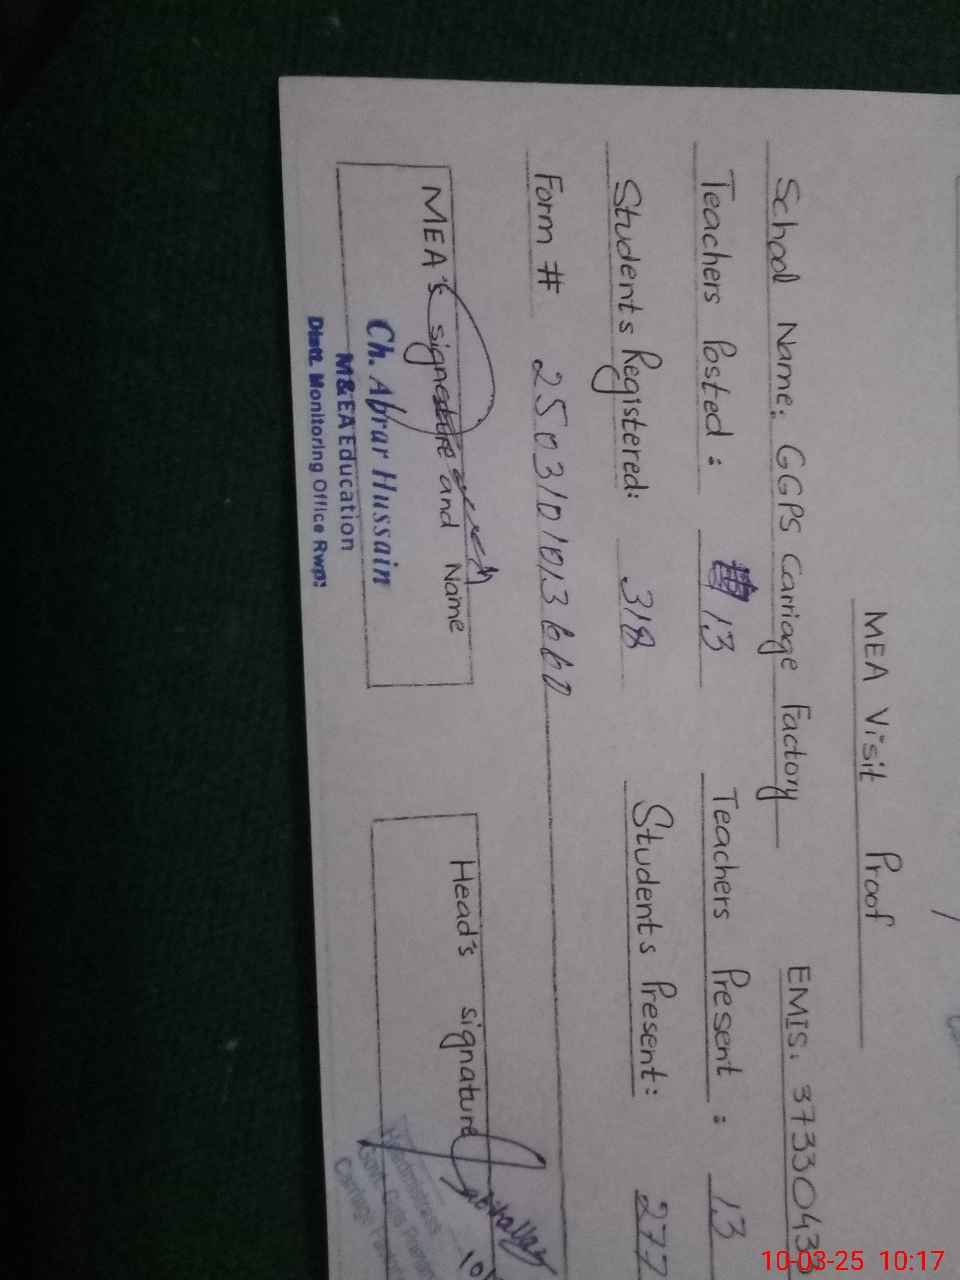 MEA Visit Proof
School Name: GGPS Carriage Factory EMIS. 3733043
Teachers Posted: 13 Teachers Present: 13
Students Registered: 318 Students Present: 277
Form #
MEA's signature and Name
Ch. Abrar Hussain
M&EA Education
Distt. Monitoring Office Rwp:
Head's signature
10-03-25 10:17